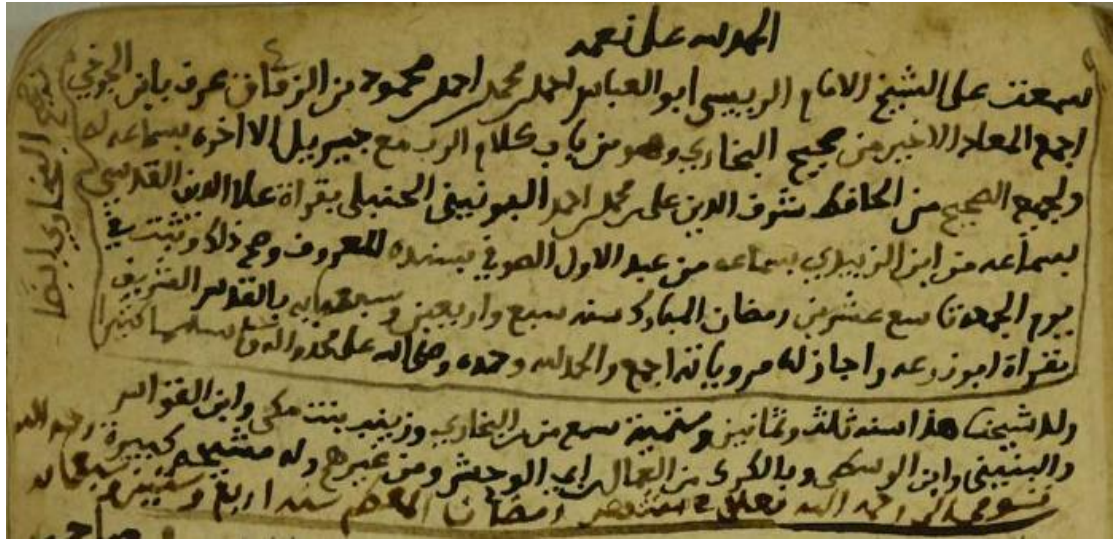 الحمد لله على نعمه
سمعت على الشيخ الامام الرييس ابو العباس احمد بن محمد بن احمد بن محمود بن الزقاق عرف بابن الجوخي
اجمع المعاد الاخير من صحيح البخاري وهو من باب كلام الرب مع جبريل الا اخره بسماعه له
ولجميع الصحيح من الحافظ شرف الدين على بن محمد بن احمد اليونيني الحنبلى بقراة علا الدين المقدسي
بسماعه من ابن الزبيدي بسماعه من عبد الاول الصوفي بسنده المعروف وصح ذلك وثبت في
يوم الجمعة تاسع عشرين رمضان المبارك سنة سبع واربعين وسبعمايه بالقدس الشريف
بقراة ابو زرعه واجاز له مروياته اجمع والحمد لله وحده وصلى الله على محمد واله وسلم تسليما كثيرا
ولد شيخنا هذا سنه ثالث وثمانين وستمية سمع من بن البخاري وزينب بنت مكى وابن القواس
واليونيني وابن الواسطى وبالكرك من ومن غيرهم وله مشيخه كبيرة رحمه الله
توفي الى رحمة الله تعالى في رمضان المعظم سنه اربع وستين وسبعمايه
صحيح البخاري ايضا